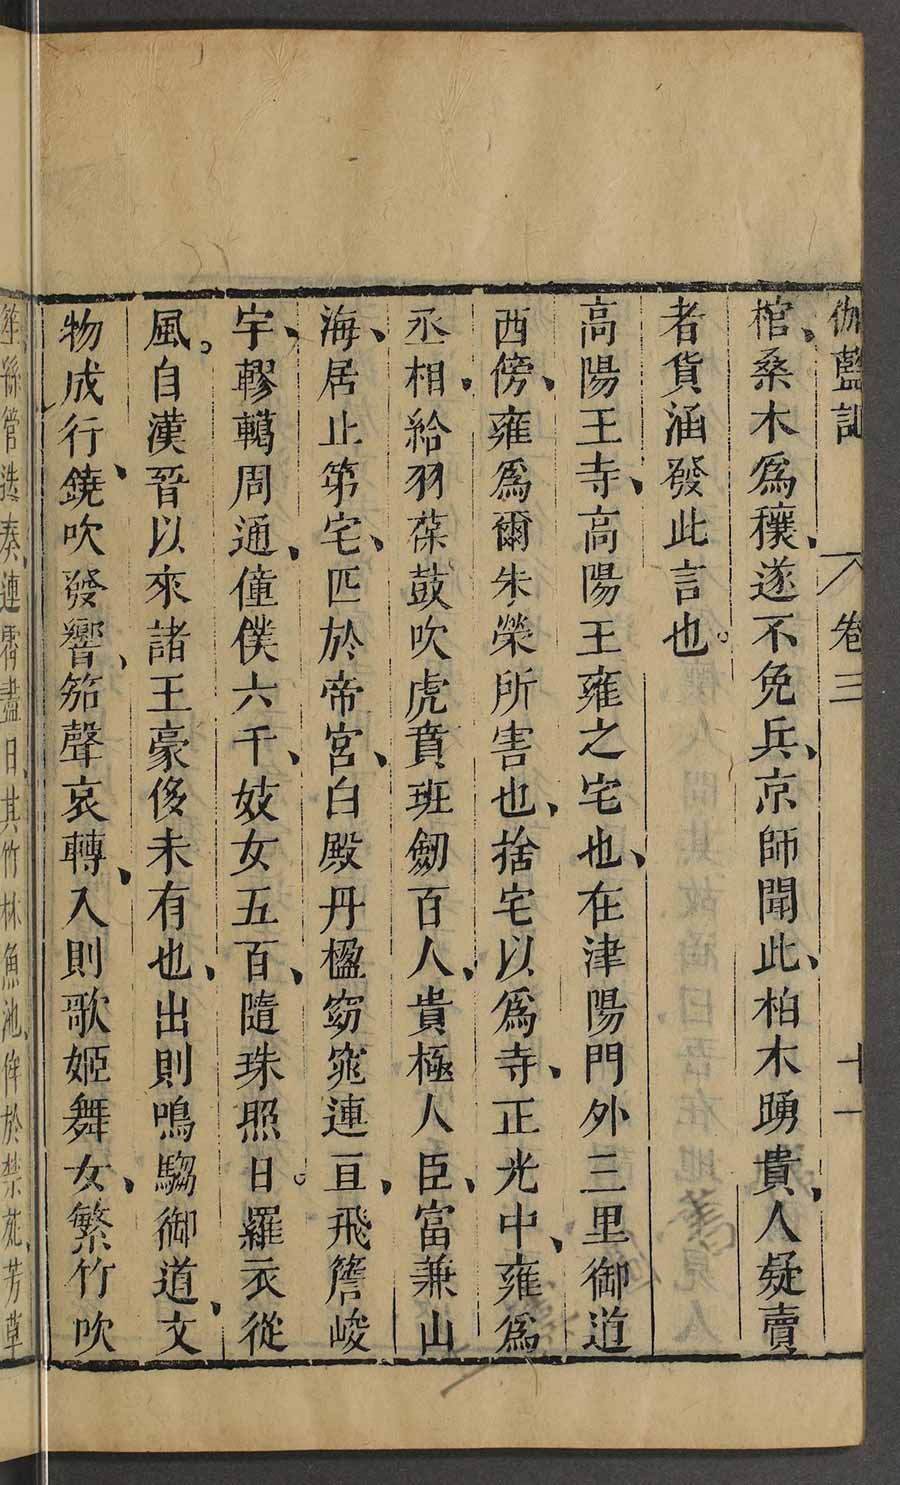 伽藍記 卷三 十一
棺、桑木爲穰、遂不免兵、京師聞此、柏木踴貴、人疑賣
者貨涵發此言也。
高陽王寺、高陽王雍之宅也、在津陽門外三里御道
西傍、雍爲爾朱榮所害也、捨宅以爲寺、正光中、雍爲
丞相、給羽葆鼓吹虎賁班劒百人、貴極人臣、富兼山
海、居止第宅、匹於帝宮、白殿丹楹窈窕連亘、飛簷峻
宇、轇轕周通、僮僕六千、妓女五百、隨珠照日。羅衣從
風。自漢晉以來諸王豪侈未有也、出則鳴騶御道、文
物成行、鐃吹發響、笳聲哀轉、入則歌姬舞女、繁竹吹
笙、絲管迭奏、連霄盡日、其竹林魚池、侔於禁苑、芳草